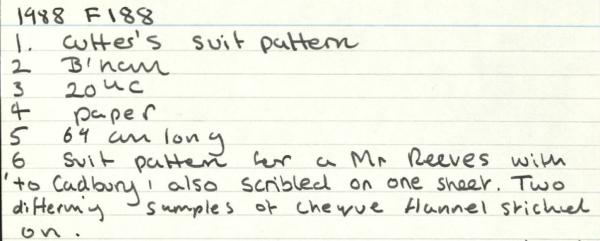 1988 F188
1. Cutter's suit pattern
2 B'ham
3 20th C
4 paper
5 64 cm long
6 Suit pattern for a Mr Reeves with
'to Cadbury' also scribled on one sheet. Two
differing samples of cheque flannel stiched
on.